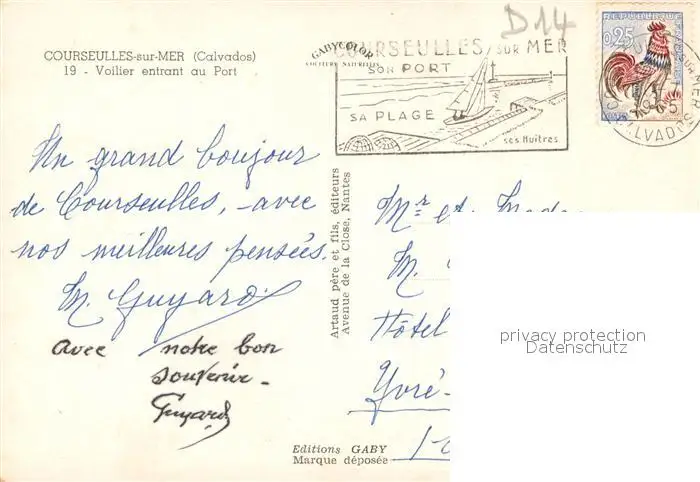 COURSEULLES-sur-MER (Calvados)
19 - Voilier entrant au Port
GABYCOLOR
COULEURS NATURELLES
D14
COURSEULLES/SUR MER
SON PORT
SA PLAGE
ses Huîtres
REPUBLIQUE FRANÇAISE
0,25
CALVADOS
Un grand boujour
de Courseulles, avec
nos meilleures pensées.
M. Guyard
avec notre bon
souvenir -
Guyard
Artaud père et fils, éditeurs
Avenue de la Close, Nantes
Mr et Mada
M.
Hôtel
Yvré-
Editions GABY
Marque déposée
privacy protection
Datenschutz